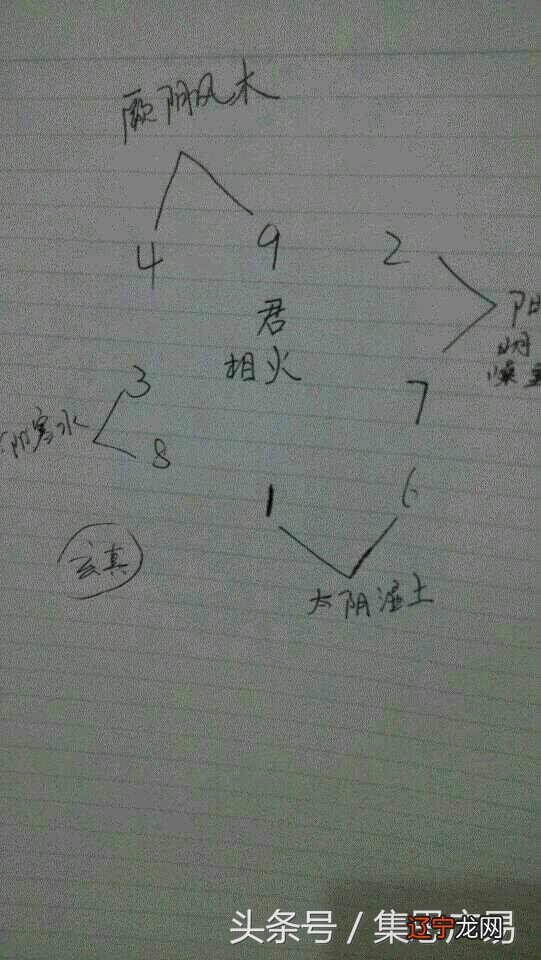 厥阴风木
4 9 2
君
相火
阳
明
燥
3
阴寒水
8
7
1 6
玄真
太阴湿土
头条号 / 集思广易
辽宁龙网